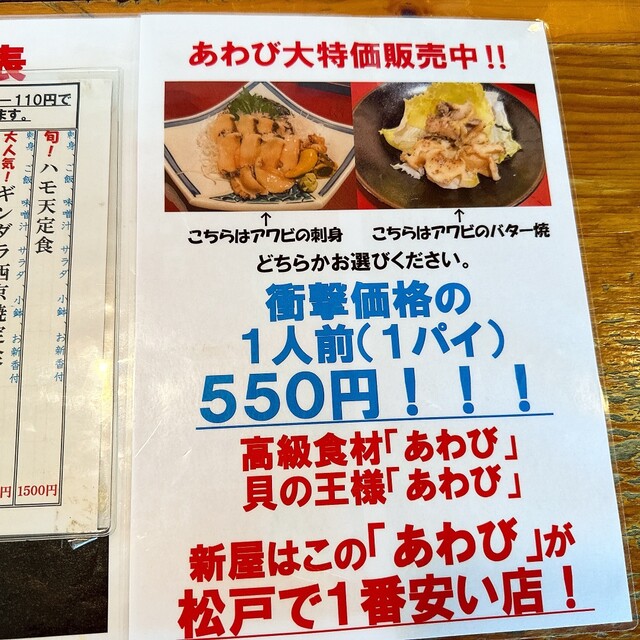 あわび大特価販売中!!
↑
こちらはアワビの刺身
↑
こちらはアワビのバター焼
どちらかお選びください。
衝撃価格の
1人前(1パイ)
550円!!!
高級食材「あわび」
貝の王様「あわび」
新屋はこの「あわび」が
松戸で1番安い店!
表
ー110円で
ます。
刺身 ご飯 味噌汁 サラダ 小鉢 お新香付
旬!ハモ天定食
1500円
刺身 ご飯 味噌汁 サラダ 小鉢 お新香付
大人気!ギンダラ西京焼定食
円